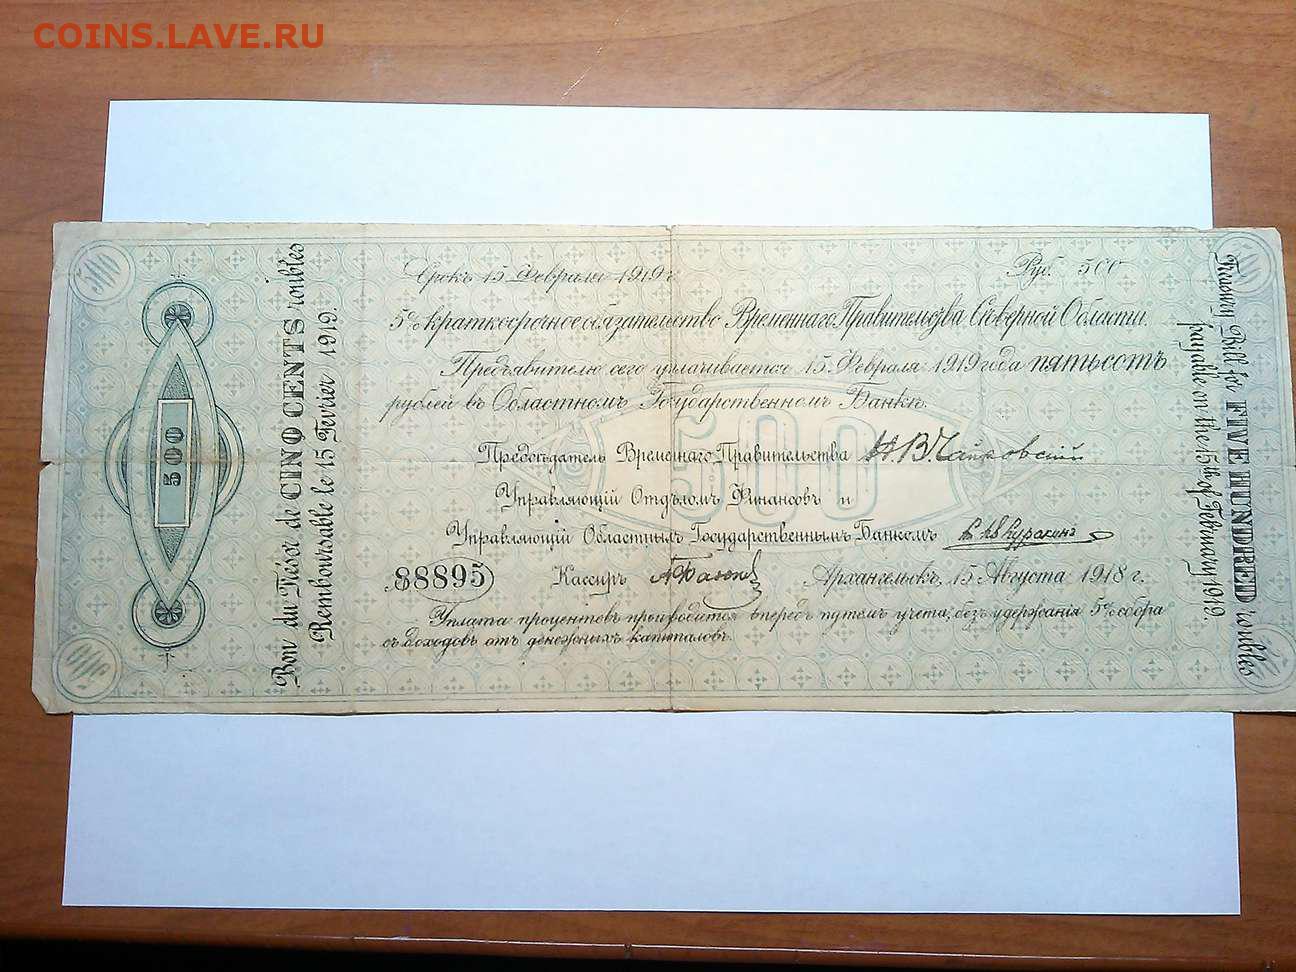 COINS.LAVE.RU
500
500
Bon du Trésor de CINQ CENTS roubles
Remboursable le 15 Fevrier 1919.
Срокъ 15 Февраля 1919 г.
Руб. 500
5% краткосрочное обязательство Временнаго Правительства Сѣверной Области.
Предъявителю сего уплачивается 15 Февраля 1919 года пятьсотъ
рублей въ Областномъ Государственномъ Банкѣ.
500
Предсѣдатель Временнаго Правительства Н.В. Чайковскій
Управляющій Отдѣломъ Финансовъ и
Управляющій Областнымъ Государственнымъ Банкомъ Куракинъ
88895
Кассиръ
Архангельскъ, 15 Августа 1918 г.
Уплата процентовъ производится впередъ путемъ учета, безъ удержанія 5% сбора
съ доходовъ отъ денежныхъ капиталовъ.
500
500
Treasury Bill for FIVE HUNDRED roubles
payable on the 15th of February 1919.